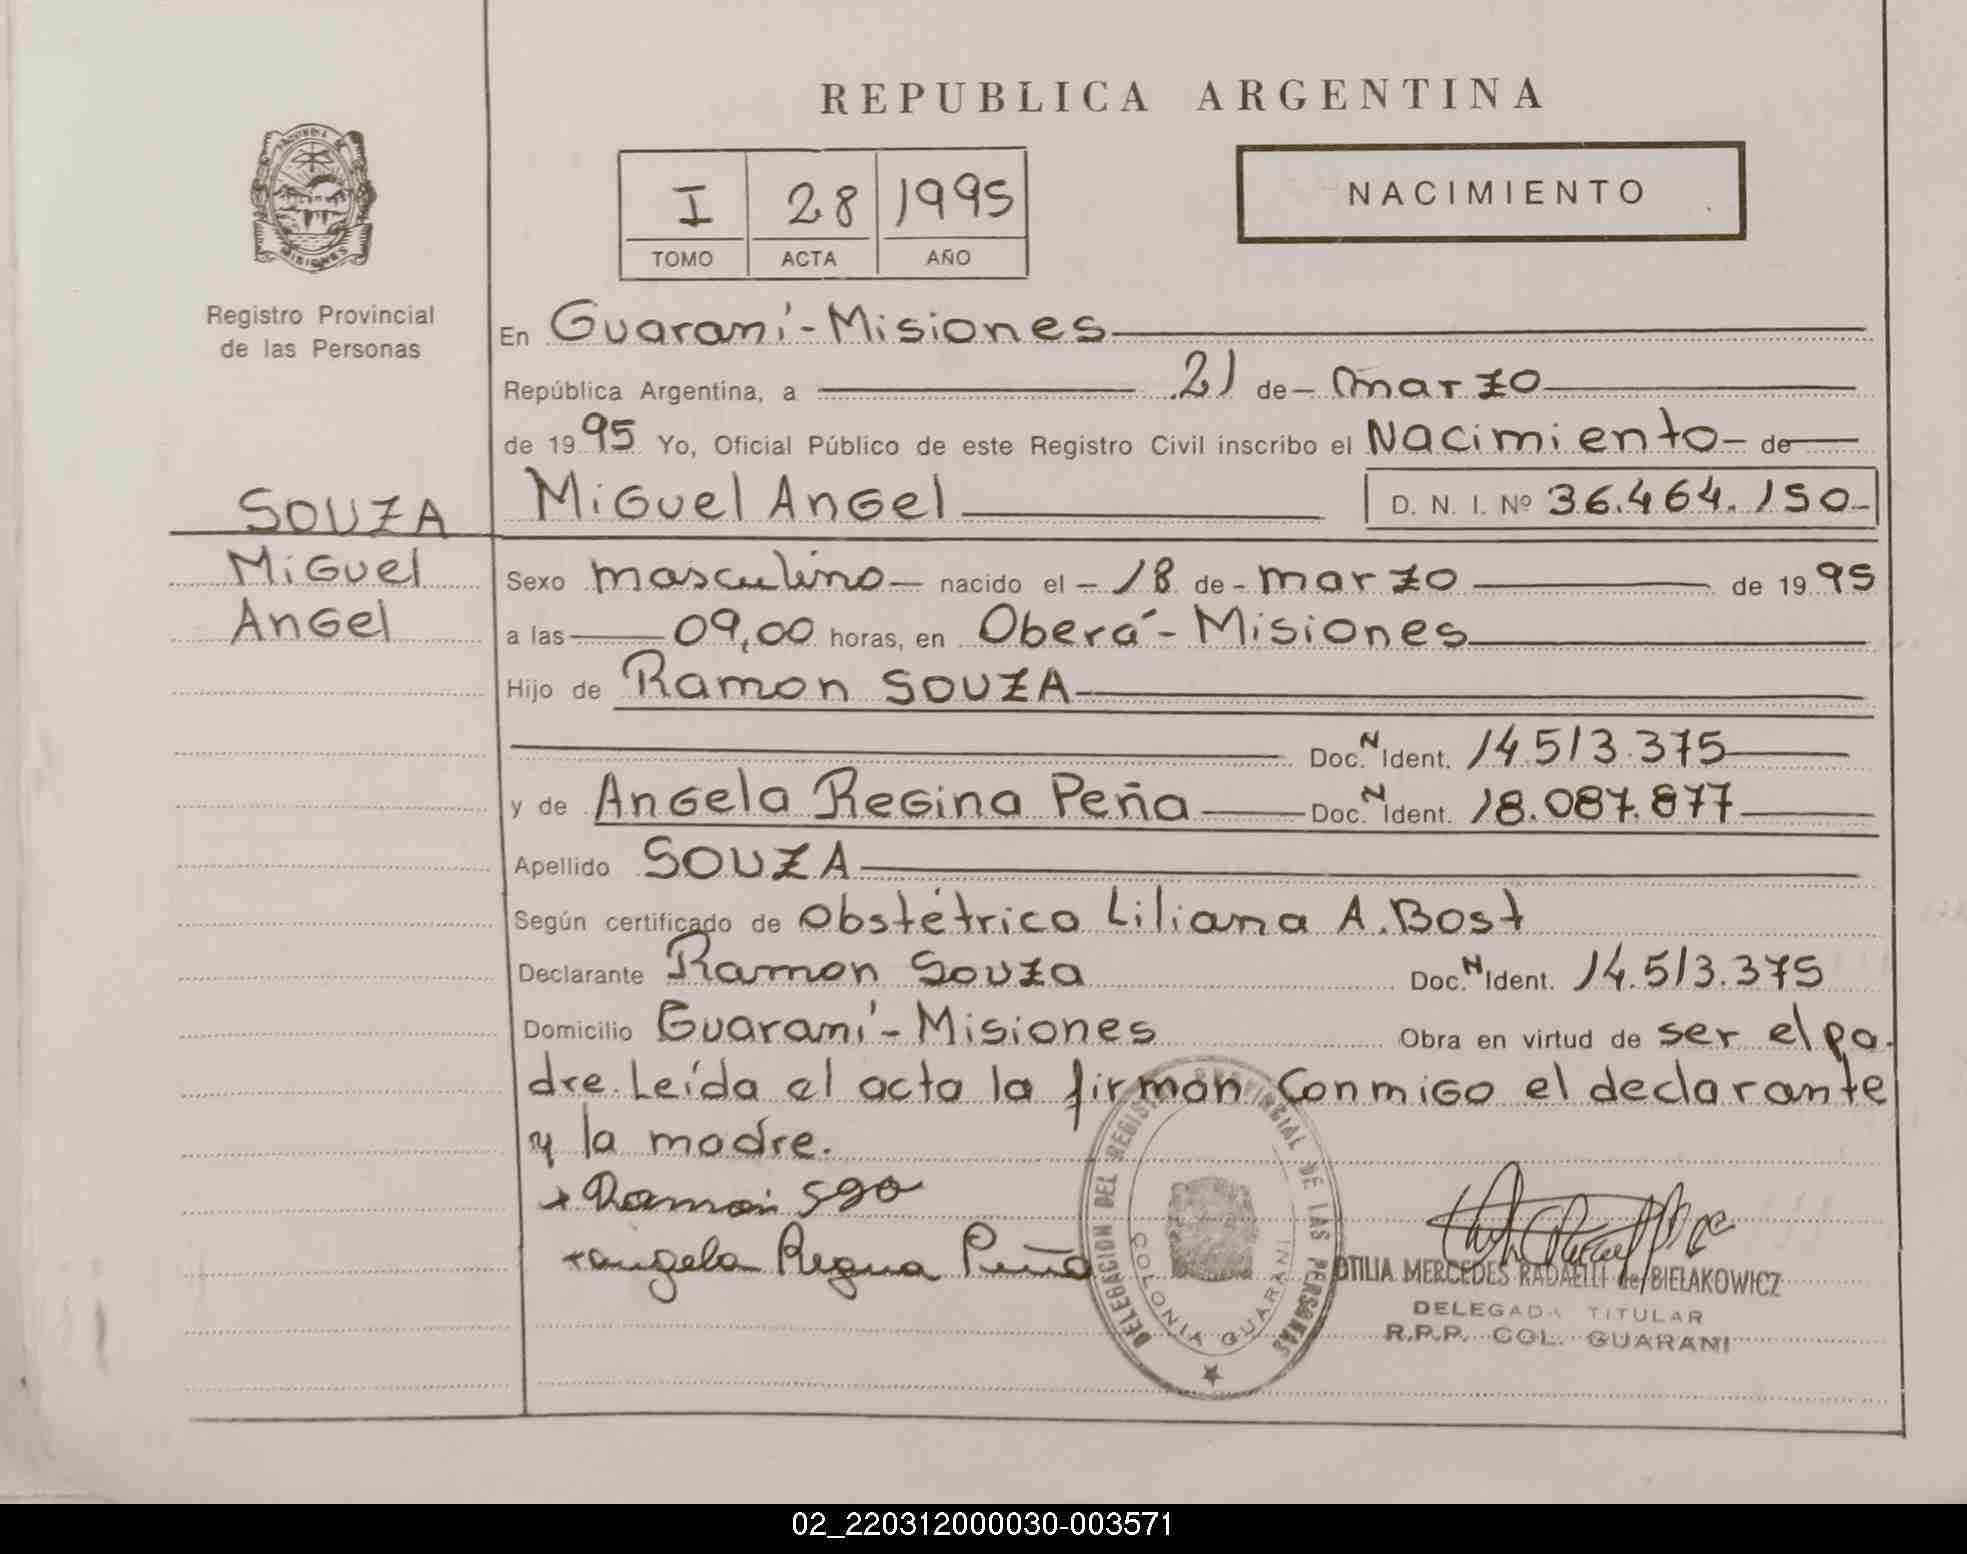 REPUBLICA ARGENTINA
PROVINCIA DE
MISIONES
Registro Provincial
de las Personas
I 28 1995
TOMO ACTA AÑO
NACIMIENTO
En Guaraní-Misiones
República Argentina, a 21 de marzo
de 1995 Yo, Oficial Público de este Registro Civil inscribo el Nacimiento de
SOUZA
Miguel
Angel
Miguel Angel D. N. I. Nº 36.464.150
Sexo masculino nacido el 18 de marzo de 1995
a las 09,00 horas, en Oberá-Misiones
Hijo de Ramon SOUZA
Doc. N Ident. 14.513.375
y de Angela Regina Peña Doc. N Ident. 18.087.877
Apellido SOUZA
Según certificado de Obstétrica Liliana A. Bost
Declarante Ramon Souza Doc. N Ident. 14.513.375
Domicilio Guaraní-Misiones Obra en virtud de ser el pa-
dre. Leída el acta la firman conmigo el declarante
y la madre.
Ramon
angela Regina Peña
DELEGACION DEL REGISTRO PROVINCIAL DE LAS PERSONAS
COLONIA GUARANI
OTILIA MERCEDES RADAELLI de BIELAKOWICZ
DELEGADA TITULAR
R.P.P. COL. GUARANI
02_220312000030-003571